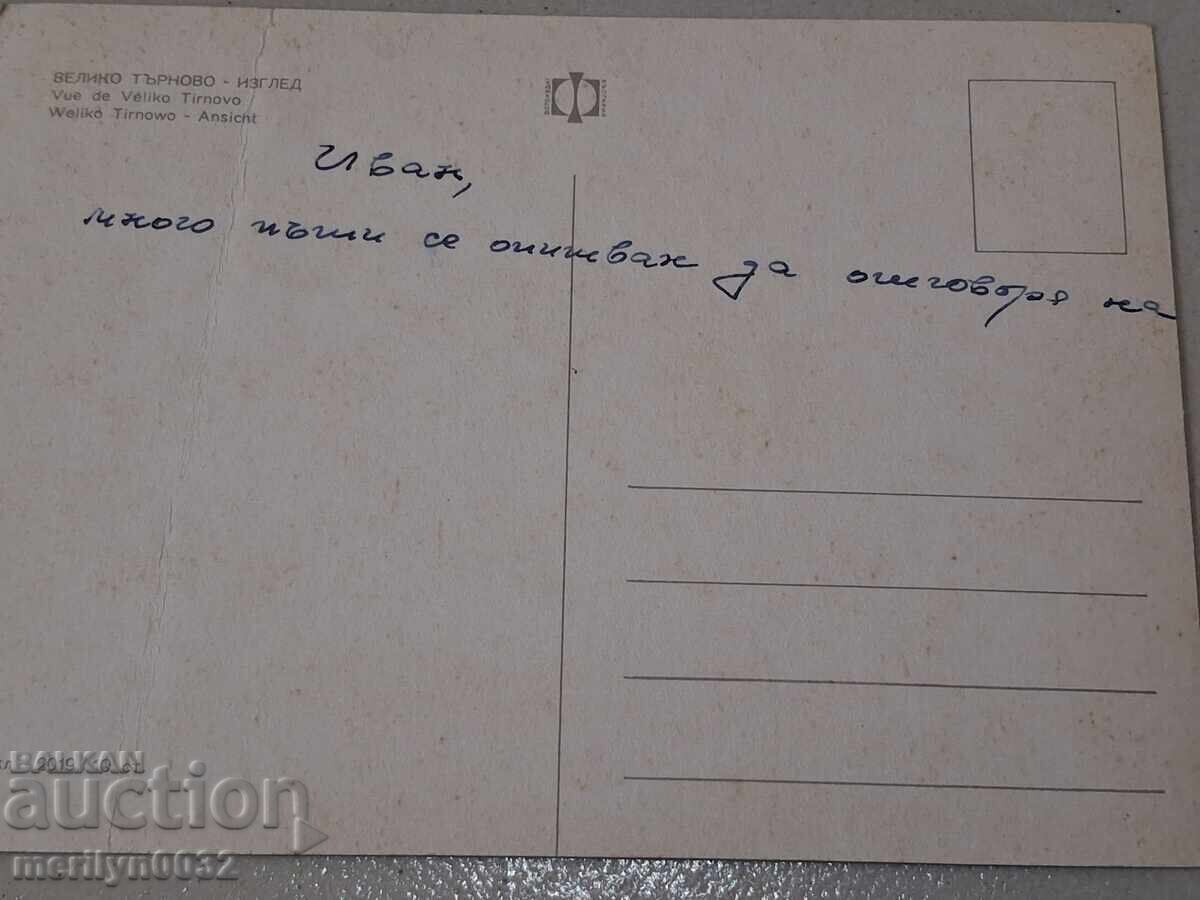 ВЕЛИКО ТЪРНОВО - ИЗГЛЕД
Vue de Véliko Tirnovo
Weliko Tirnowo - Ansicht
Иван,
много пъти се опитвах да отговоря на
BALKAN
auction
merilyn0032